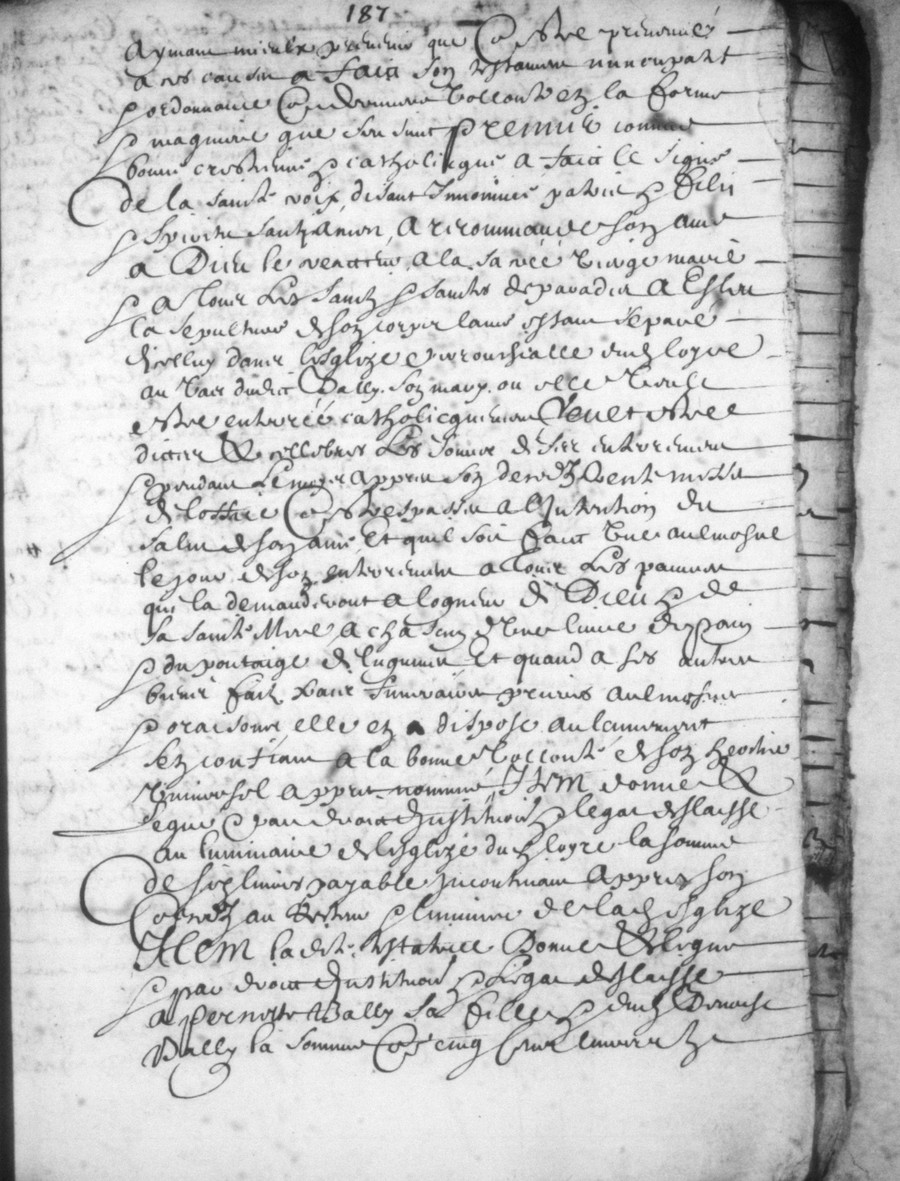 187
Aymant mieulx prevenir que destre prevenue
a ses causes a faict son testament nuncupatif
et ordonnance de derniere vollonte en la forme
et magniere que sen suit premier comme
bonne crestienne et catholicque a faict le signe
de la saincte croix disant Innomine patris et filii
et spiritu sancti amen, A recommande son ame
a Dieu le createur a la sacree vierge marie
et a tous les saintz et sainctes de paradis A Eslleu
la sepulture de son corps lame estant separe
dicelluy dans lesglize parrochialle dud loyre
au vas dudict Bally son mary ou elle veust
estre enterree catholicquement veult estre
dictes et cellebres les jours de ses enterrement
et pendant lannee appres son deces trente messes
de loffice des trespasses a l'intention du
salut de son ame Et quil soit faict une aulmosne
le jour de son enterrement a tous les pauvres
que la demanderont a logneur de Dieu et de
sa saincte Mere a chascung dune livre de pain
et du pottaige de lugumes Et quand a ses autres
biens faitz luminaire prieres aulmosnes
et oraisons elle en a dispose aultrement
sen confiant a la bonne vollonte de son heretier
universel appres nomme, Item donne et
legue par droict d'institution et legat deslaisse
au luminaire de lesglize dud loyre la somme
de sept livres payable incontinant appres son
deces au Recteur et luminier de lad esglize
Item ladite testatrice Donne et legue
et par droict d'institution et legat deslaisse
a Pernette Bally sa fille et dud Benoist
Bally la somme de cinq livres